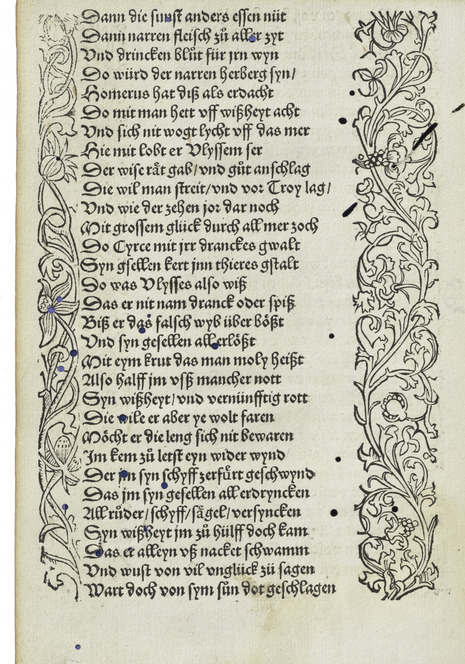 Dann die sunst anders essen nüt
Dann narren fleisch zů aller zyt
Vnd drincken blůt für jrn wyn
Do würd der narren herberg syn /
Homerus hat diß als erdacht
Do mit man hett vff wißheyt acht
Vnd sich nit wogt lycht vff das mer
Hie mit lobt er Vlyssem ser
Der wise rät gab / vnd gůt anschlag
Die wil man streit / vnd vor Troy lag /
Vnd wie der zehen jor dar noch
Mit grossem glück durch all mer zoch
Do Cyrce mit jrr dranckes gwalt
Syn gsellen kert jnn thieres gstalt
Do was Vlysses also wiß
Das er nit nam dranck oder spiß
Biß er das falsch wyb über bößt
Vnd syn gesellen all erlößt
Mit eym krut das man moly heißt
Also halff jm vß mancher nott
Syn wißheyt / vnd vernünfftig rott
Die wile er aber ye wolt faren
Möcht er die leng sich nit bewaren
Im kem zů letst eyn wider wynd
Der jm syn schyff zerfůrt geschwynd
Das jm syn gesellen all erdryncken
All růder / schyff / sägel / versyncken
Syn wißheyt jm zů hülff doch kam
Das er alleyn vß nacket schwamm
Vnd wust von vil vnglück zů sagen
Wart doch von sym sůn dot geschlagen